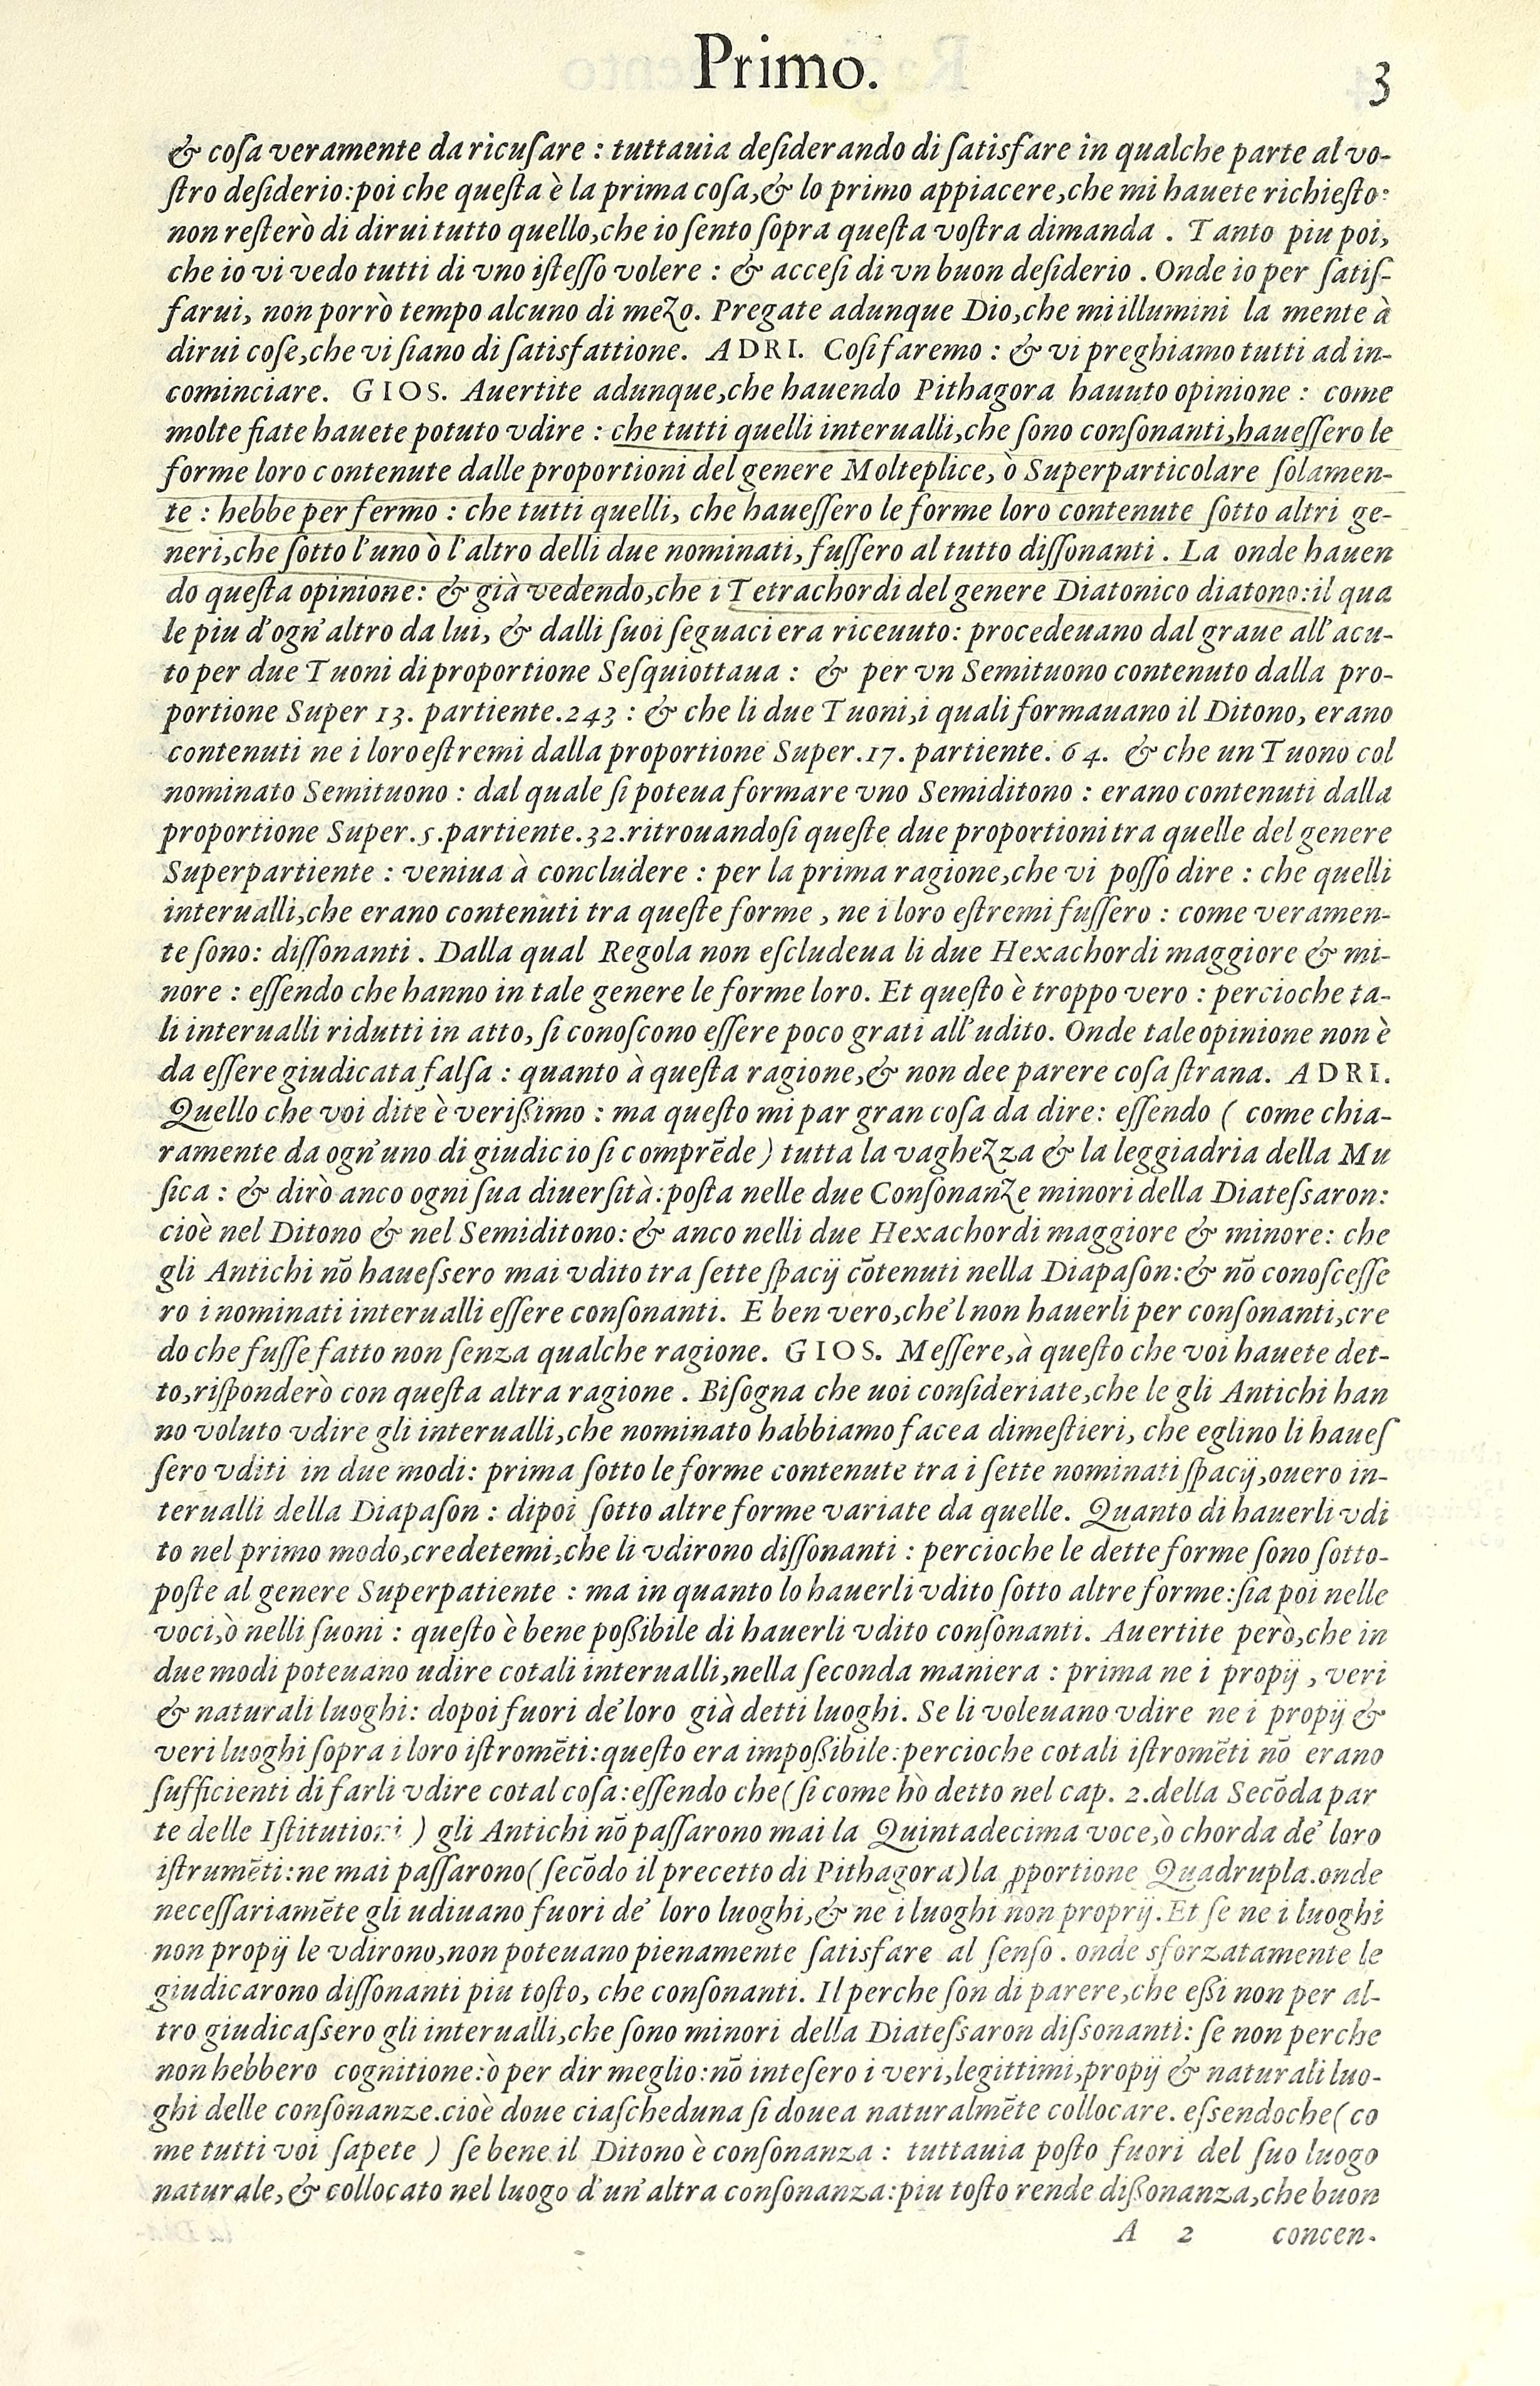 Primo.
3
& coſa veramente da ricuſare : tuttauia deſiderando di ſatisfare in qualche parte al vo-
ſtro deſiderio: poi che queſta è la prima coſa, & lo primo appiacere, che mi hauete richieſto:
non reſterò di dirui tutto quello, che io ſento ſopra queſta voſtra dimanda . Tanto piu poi,
che io vi vedo tutti di vno iſteſſo volere : & acceſi di vn buon deſiderio . Onde io per ſatiſ-
farui, non porrò tempo alcuno di mezo. Pregate adunque Dio, che mi illumini la mente à
dirui coſe, che vi ſiano di ſatisfattione. ADRI. Coſi faremo : & vi preghiamo tutti ad in-
cominciare. GIOS. Auertite adunque, che hauendo Pithagora hauuto opinione : come
molte fiate hauete potuto vdire : che tutti quelli interualli, che ſono conſonanti, haueſſero le
forme loro contenute dalle proportioni del genere Molteplice, ò Superparticolare ſolamen-
te : hebbe per fermo : che tutti quelli, che haueſſero le forme loro contenute ſotto altri ge-
neri, che ſotto l'uno ò l'altro delli due nominati, fuſſero al tutto diſſonanti . La onde hauen
do queſta opinione: & già vedendo, che i Tetrachordi del genere Diatonico diatono: il qua
le piu d'ogn'altro da lui, & dalli ſuoi ſeguaci era riceuuto: procedeuano dal graue all'acu-
to per due Tuoni di proportione Seſquiottaua : & per vn Semituono contenuto dalla pro-
portione Super 13. partiente.243 : & che li due Tuoni, i quali formauano il Ditono, erano
contenuti ne i loro eſtremi dalla proportione Super.17. partiente. 64. & che un Tuono col
nominato Semituono : dal quale ſi poteua formare vno Semiditono : erano contenuti dalla
proportione Super.5.partiente.32.ritrouandoſi queſte due proportioni tra quelle del genere
Superpartiente : veniua à concludere : per la prima ragione, che vi poſſo dire : che quelli
interualli, che erano contenuti tra queſte forme , ne i loro eſtremi fuſſero : come veramen-
te ſono: diſſonanti . Dalla qual Regola non eſcludeua li due Hexachordi maggiore & mi-
nore : eſſendo che hanno in tale genere le forme loro. Et queſto è troppo vero : percioche ta-
li interualli ridutti in atto, ſi conoſcono eſſere poco grati all'udito. Onde tale opinione non è
da eſſere giudicata falſa : quanto à queſta ragione, & non dee parere coſa ſtrana. ADRI.
Quello che voi dite è verißimo : ma queſto mi par gran coſa da dire: eſſendo ( come chia-
ramente da ogn'uno di giudicio ſi comprēde) tutta la vaghezza & la leggiadria della Mu
ſica : & dirò anco ogni ſua diuerſità: poſta nelle due Conſonanze minori della Diateſsaron:
cioè nel Ditono & nel Semiditono: & anco nelli due Hexachordi maggiore & minore: che
gli Antichi nō haueſsero mai vdito tra ſette ſpacij cōtenuti nella Diapaſon: & nō conoſceſſe
ro i nominati interualli eſſere conſonanti. E ben vero, che'l non hauerli per conſonanti, cre
do che fuſſe fatto non ſenza qualche ragione. GIOS. Meſſere, à queſto che voi hauete det-
to, riſponderò con queſta altra ragione . Biſogna che uoi conſideriate, che ſe gli Antichi han
no voluto vdire gli interualli, che nominato habbiamo facea dimeſtieri, che eglino li haueſ
ſero vditi in due modi: prima ſotto le forme contenute tra i ſette nominati ſpacij, ouero in-
terualli della Diapaſon : dipoi ſotto altre forme variate da quelle. Quanto di hauerli vdi
to nel primo modo, credetemi, che li vdirono diſſonanti : percioche le dette forme ſono ſotto-
poſte al genere Superpatiente : ma in quanto lo hauerli vdito ſotto altre forme: ſia poi nelle
voci, ò nelli ſuoni : queſto è bene poßibile di hauerli vdito conſonanti. Auertite però, che in
due modi poteuano udire cotali interualli, nella ſeconda maniera : prima ne i propij , veri
& naturali luoghi: dopoi fuori de'loro già detti luoghi. Se li voleuano vdire ne i propij &
veri luoghi ſopra i loro iſtromēti: queſto era impoßibile: percioche cotali iſtromēti nō erano
ſufficienti di farli vdire cotal coſa: eſſendo che ( ſi come hò detto nel cap. 2. della Secōda par
te delle Iſtitutioni ) gli Antichi nō paſſarono mai la Quintadecima voce, ò chorda de' loro
iſtrumēti: ne mai paſſarono ( ſecōdo il precetto di Pithagora) la ꝓportione Quadrupla. onde
neceſſariamēte gli udiuano fuori de' loro luoghi, & ne i luoghi non proprij. Et ſe ne i luoghi
non propij le vdirono, non poteuano pienamente ſatisfare al ſenſo . onde sforzatamente le
giudicarono diſſonanti piu toſto, che conſonanti. Il perche ſon di parere, che eßi non per al-
tro giudicaſsero gli interualli, che ſono minori della Diateſsaron diſsonanti: ſe non perche
non hebbero cognitione: ò per dir meglio: nō inteſero i veri, legittimi, propij & naturali luo-
ghi delle conſonanze. cioè doue ciaſcheduna ſi douea naturalmēte collocare. eſsendoche ( co
me tutti voi ſapete ) ſe bene il Ditono è conſonanza : tuttauia poſto fuori del ſuo luogo
naturale, & collocato nel luogo d'un'altra conſonanza: piu toſto rende dißonanza, che buon
A 2 concen-